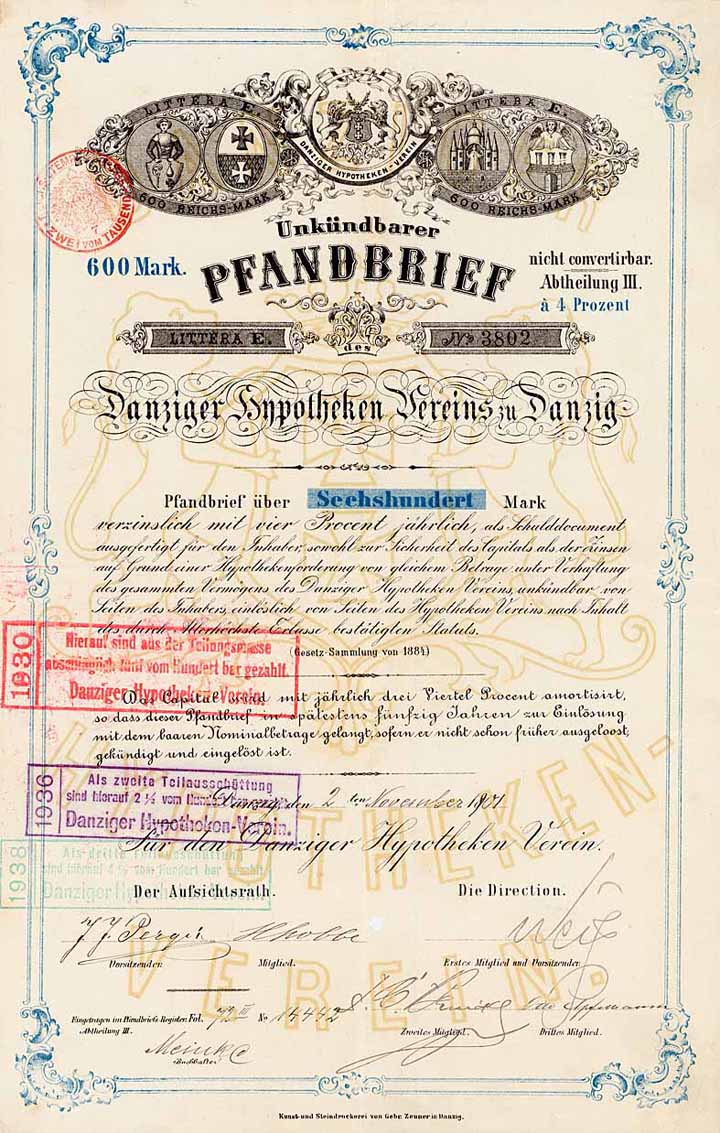 LITTERA E.
LITTERA E.
DANZIGER HYPOTHEKEN-VEREIN
600 REICHS-MARK
600 REICHS-MARK
ZWEI VOM TAUSEND
Unkündbarer
600 Mark.
PFANDBRIEF
nicht convertirbar.
Abtheilung III.
à 4 Prozent
LITTERA E.
des
No 3802
Danziger Hypotheken Vereins zu Danzig
Pfandbrief über Sechshundert Mark
verzinslich mit vier Procent jährlich, als Schulddocument
ausgefertigt für den Inhaber, sowohl zur Sicherheit des Capitals als der Zinsen
auf Grund einer Hypothekenforderung von gleichem Betrage unter Verhaftung
des gesammten Vermögens des Danziger Hypotheken Vereins, unkündbar von
Seiten des Inhabers, einlöslich von Seiten des Hypotheken Vereins nach Inhalt
des durch Allerhöchste Erlasse bestätigten Statuts.
(Gesetz-Sammlung von 1884)
1930
Hierauf sind aus der Teilungsmasse
abschläglich fünf vom Hundert bar gezahlt.
Danziger Hypotheken-Verein.
Das Capital wird mit jährlich drei Viertel Procent amortisirt,
so dass dieser Pfandbrief in spätestens fünfzig Jahren zur Einlösung
mit dem baaren Nominalbetrage gelangt, sofern er nicht schon früher ausgeloost,
gekündigt und eingelöst ist.
1936
Als zweite Teilausschüttung
sind hierauf 2 ½ vom Hundert
Danziger Hypotheken-Verein.
Danzig, den 2ten November 1901
Für den Danziger Hypotheken Verein.
1938
Als dritte Teilausschüttung
sind hierauf 4 ½ vom Hundert bar gezahlt
Danziger Hypotheken-Verein
Der Aufsichtsrath.
Die Direction.
Vorsitzender
Mitglied.
Erstes Mitglied und Vorsitzender
Eingetragen im Pfandbriefs-Register Fol. 72 III No 14442
Abtheilung III.
Zweites Mitglied.
Drittes Mitglied.
Meinke
Buchhalter
HYPOTHEKEN-
VEREIN.
Kunst- und Steindruckerei von Gebr. Zeuner in Danzig.